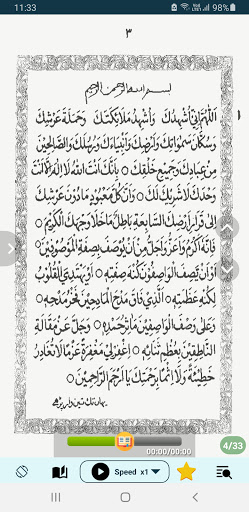 11:33
98%
٣
بسم الله الرحمن الرحيم
اللهم اني اشهدك واشهد ملائكتك وحملة عرشك
وسكان سمواتك وارضك وانبياءك ورسلك والصالحين
من عبادك وجميع خلقك ○ بانك انت الله لا اله الا انت
وحدك لا شريك لك ○ وان كل معبود ما دون عرشك
الى قرار ارضك السابعة باطل ما خلا وجهك الكريم ○
فانه اكرم واعز واجل من ان يوصف بصفة الموصوفين ○
او ان تصف الواصفون كنه صفته ○ او يهتدي القلوب
لكنه عظمته ○ الذي فاق مدح المادحين فخر مدحه ○
وعلى وصف الواصفين ما ثر حمده ○ وجل عن مقالة
الناطقين بعظم ثنائه ○ اغفر لي مغفرة عزما لا تغادر
خطيئة ولا اثما برحمتك يا ارحم الراحمين ○
4/33
00:00/00:00
Speed x1